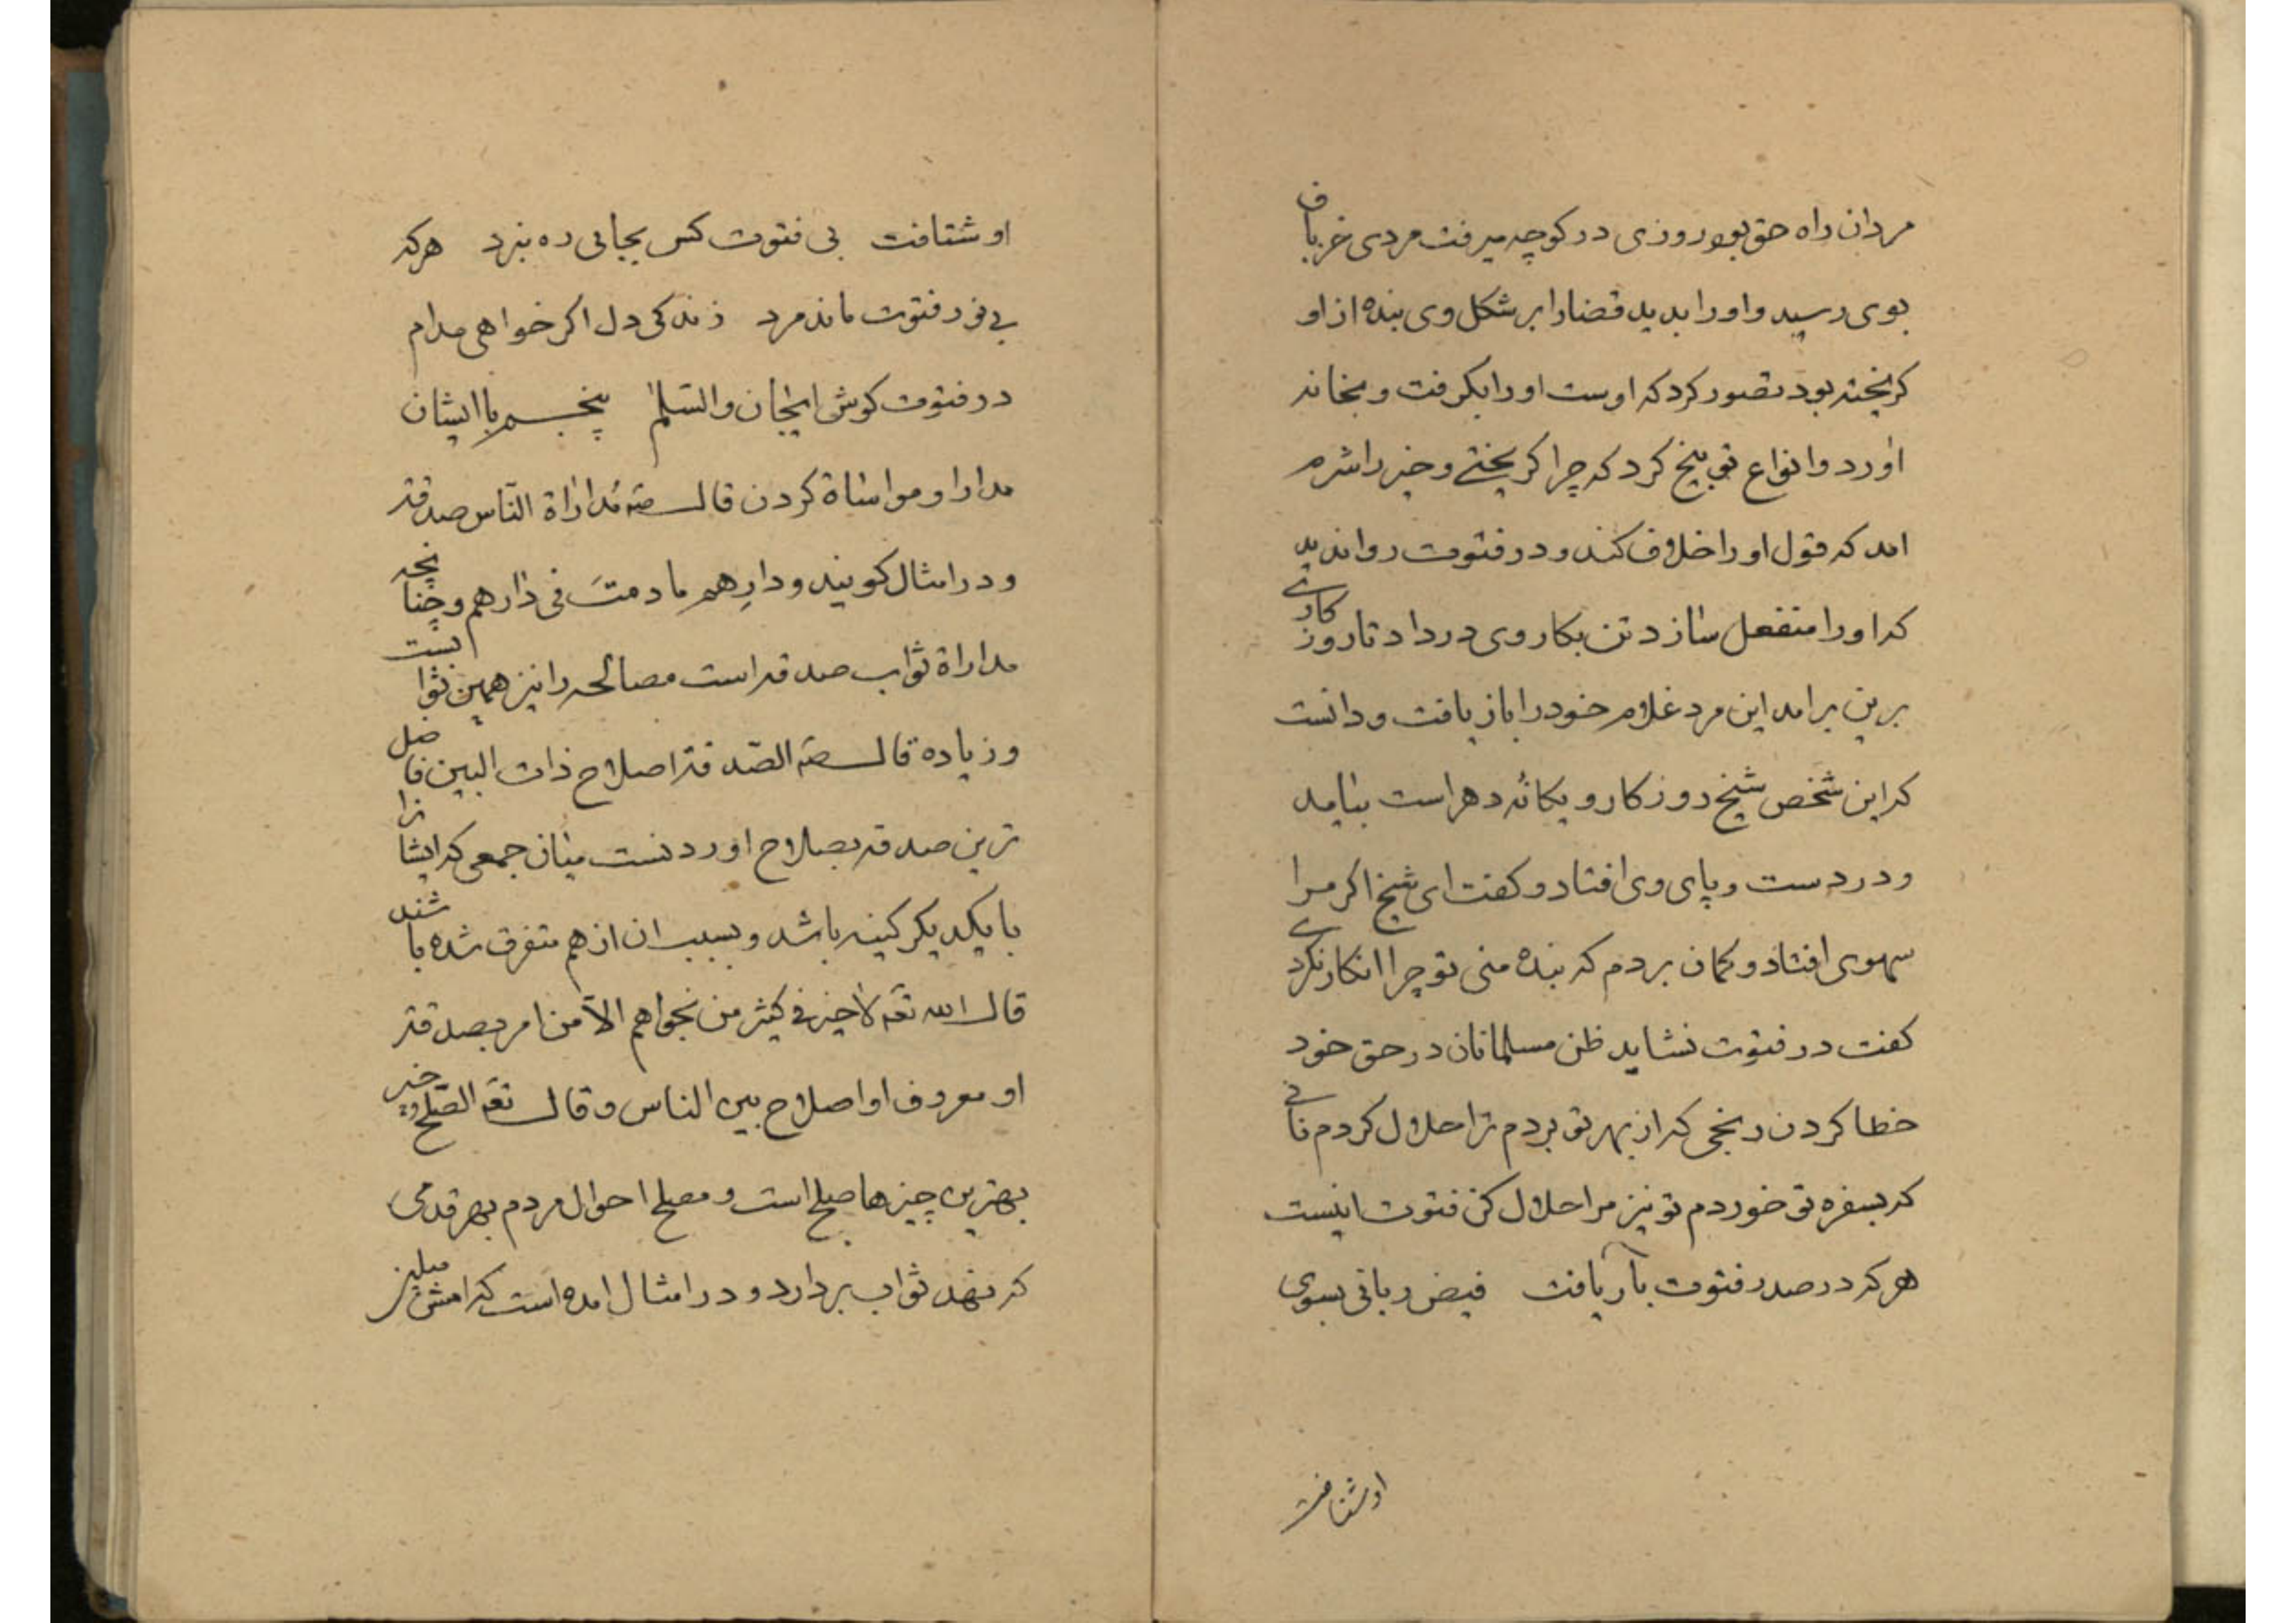 مردان راه حق بود روزی در کوچه میرفت مردی خزباف
بوی رسید و اورا بدید قضارا بر شکل وی بنده از او
کریخته بود تصور کرد که اوست اورا بکرفت و بخانه
اورد و انواع توبیخ کرد که چرا کریختی و خیر را شرم
امد که قول اورا خلاف کند و در فتوت روا ندید
که اورا منفعل سازد تن بکار وی درداد تا روزکاری
برین برامد این مرد غلام خود را باز یافت و دانست
که این شخص شیخ روزکار و یکانه دهر است بیامد
و در دست و پای وی افتاد و کفت ای شیخ اکر مرا
سهوی افتاد و کمان بردم که بنده منی تو چرا انکار نکردی
کفت در فتوت نشاید ظن مسلمانان در حق خود
خطا کردن رنجی که از بهر تو بردم ترا حلال کردم نانی
که بسفره تو خوردم تو نیز مرا حلال کن فتوت اینست
هر که در صدر فتوت بار یافت فیض ربانی بسوی
او شتافت
او شتافت بی فتوت کس بجایی ره نبرد هر که
بی نور فتوت ماند مرد زندکی دل اکر خواهی مدام
در فتوت کوش ایجان والسلم پنجم با ایشان
مدارا و مواساة کردن قال صه مُداراة الناس صدقة
و در امثال کویند و دارِهم ما دمتَ فی دارهم و چنانچه
مداراة ثواب صدقه است مصالحه را نیز همین ثوابست
و زیاده قال صه الصّدقة اصلاح ذات البین فاضل
ترین صدقه بصلاح اوردنست میان جمعی که ایشانرا
با یکدیکر کینه باشد و بسبب ان از هم متفرق شده باشند
قال الله تعه لا خیر فی کثیر من نجواهم الاّ من امر بصدقة
او معروف او اصلاح بین الناس و قال تعه الصّلح خیر
بهترین چیزها صلح است و مصلح احوال مردم بهر قدمی
که نهد ثواب بردارد و در امثال امده است که امش میلین